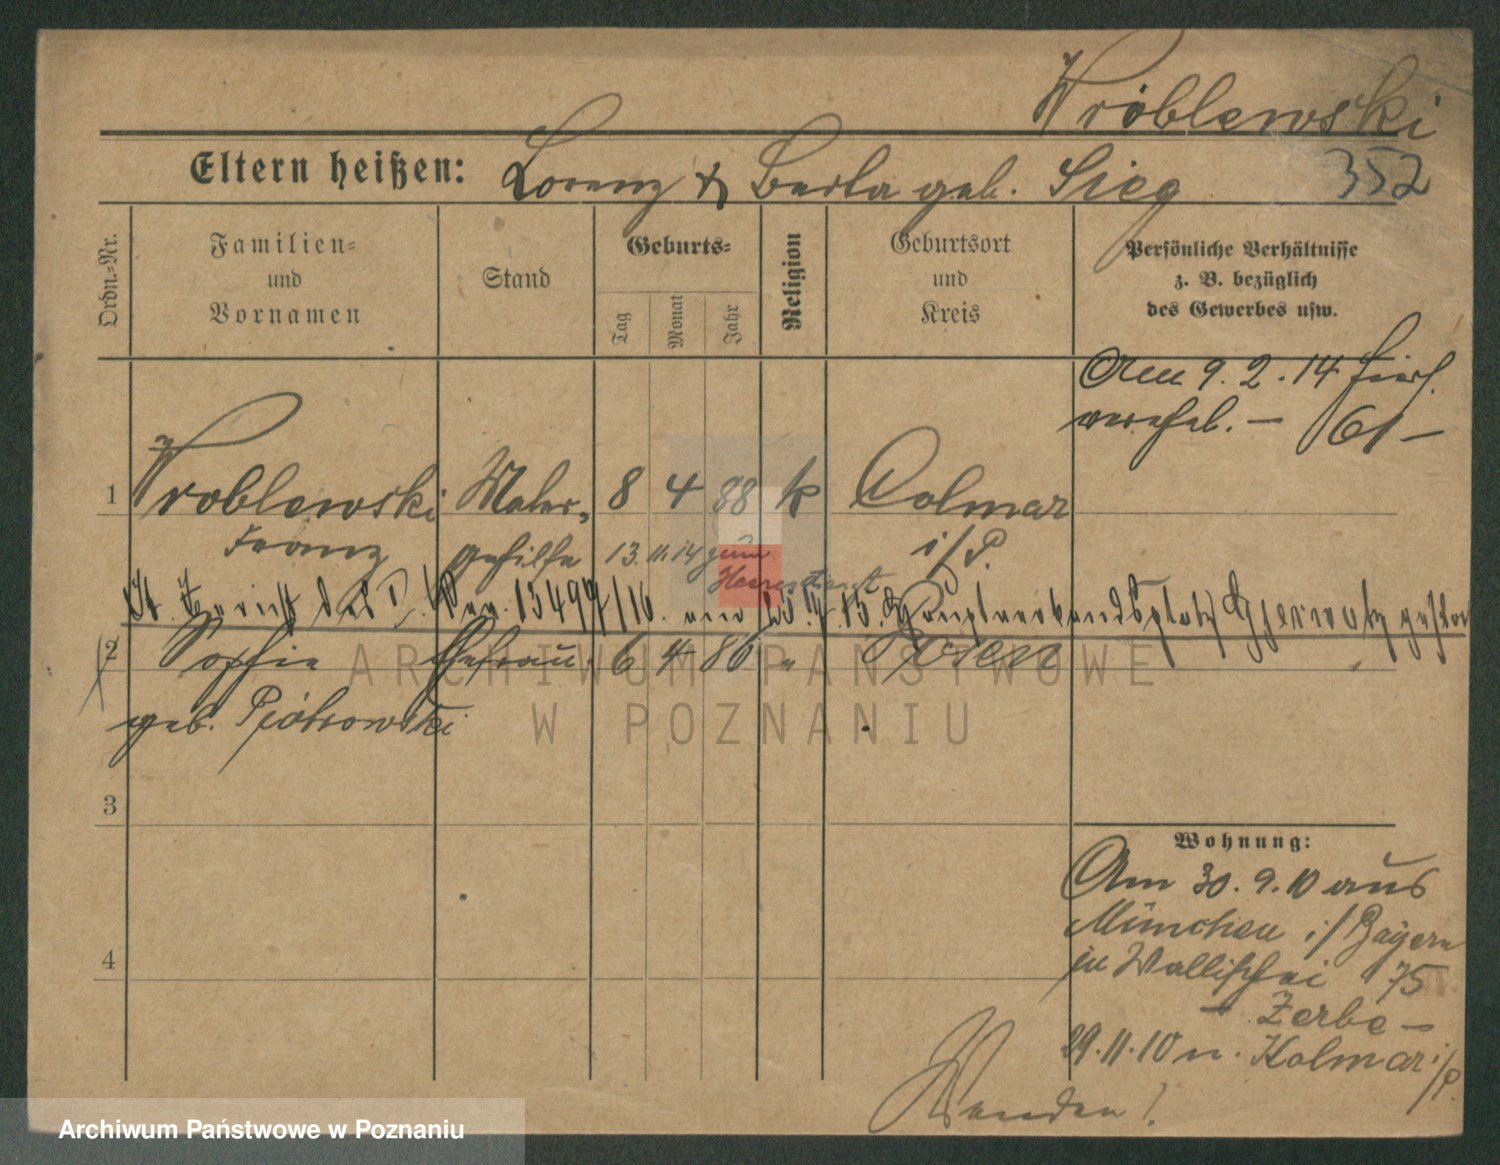 Wróblewski
Eltern heißen: Lorenz & Berta geb. Sieg 352
Ordn.-Nr.
Familien-
und
Vornamen
Stand
Geburts-
Tag
Monat
Jahr
Religion
Geburtsort
und
Kreis
Persönliche Verhältnisse
z. B. bezüglich
des Gewerbes usw.
Am 9. 2. 14 hier
verehel. — 61 —
1 Wroblewski Maler- 8 4 88 k Colmar
Franz gehilfe 13. 11. 14 zum i/P.
Heeresdienst
Lt. Bericht des 13499/16. am 15. Hauptverbandsplatz
2 Sophie Ehefrau 6 4 86 " Posen
geb. Piotrowski
3
4
Wohnung:
Am 30. 9. 10 aus
München i/Bayern
in Wallischei 75
— Zerbe —
29. 11. 10 n. Kolmar i/P.
Wenden!
ARCHIWUM PAŃSTWOWE
W POZNANIU
Archiwum Państwowe w Poznaniu